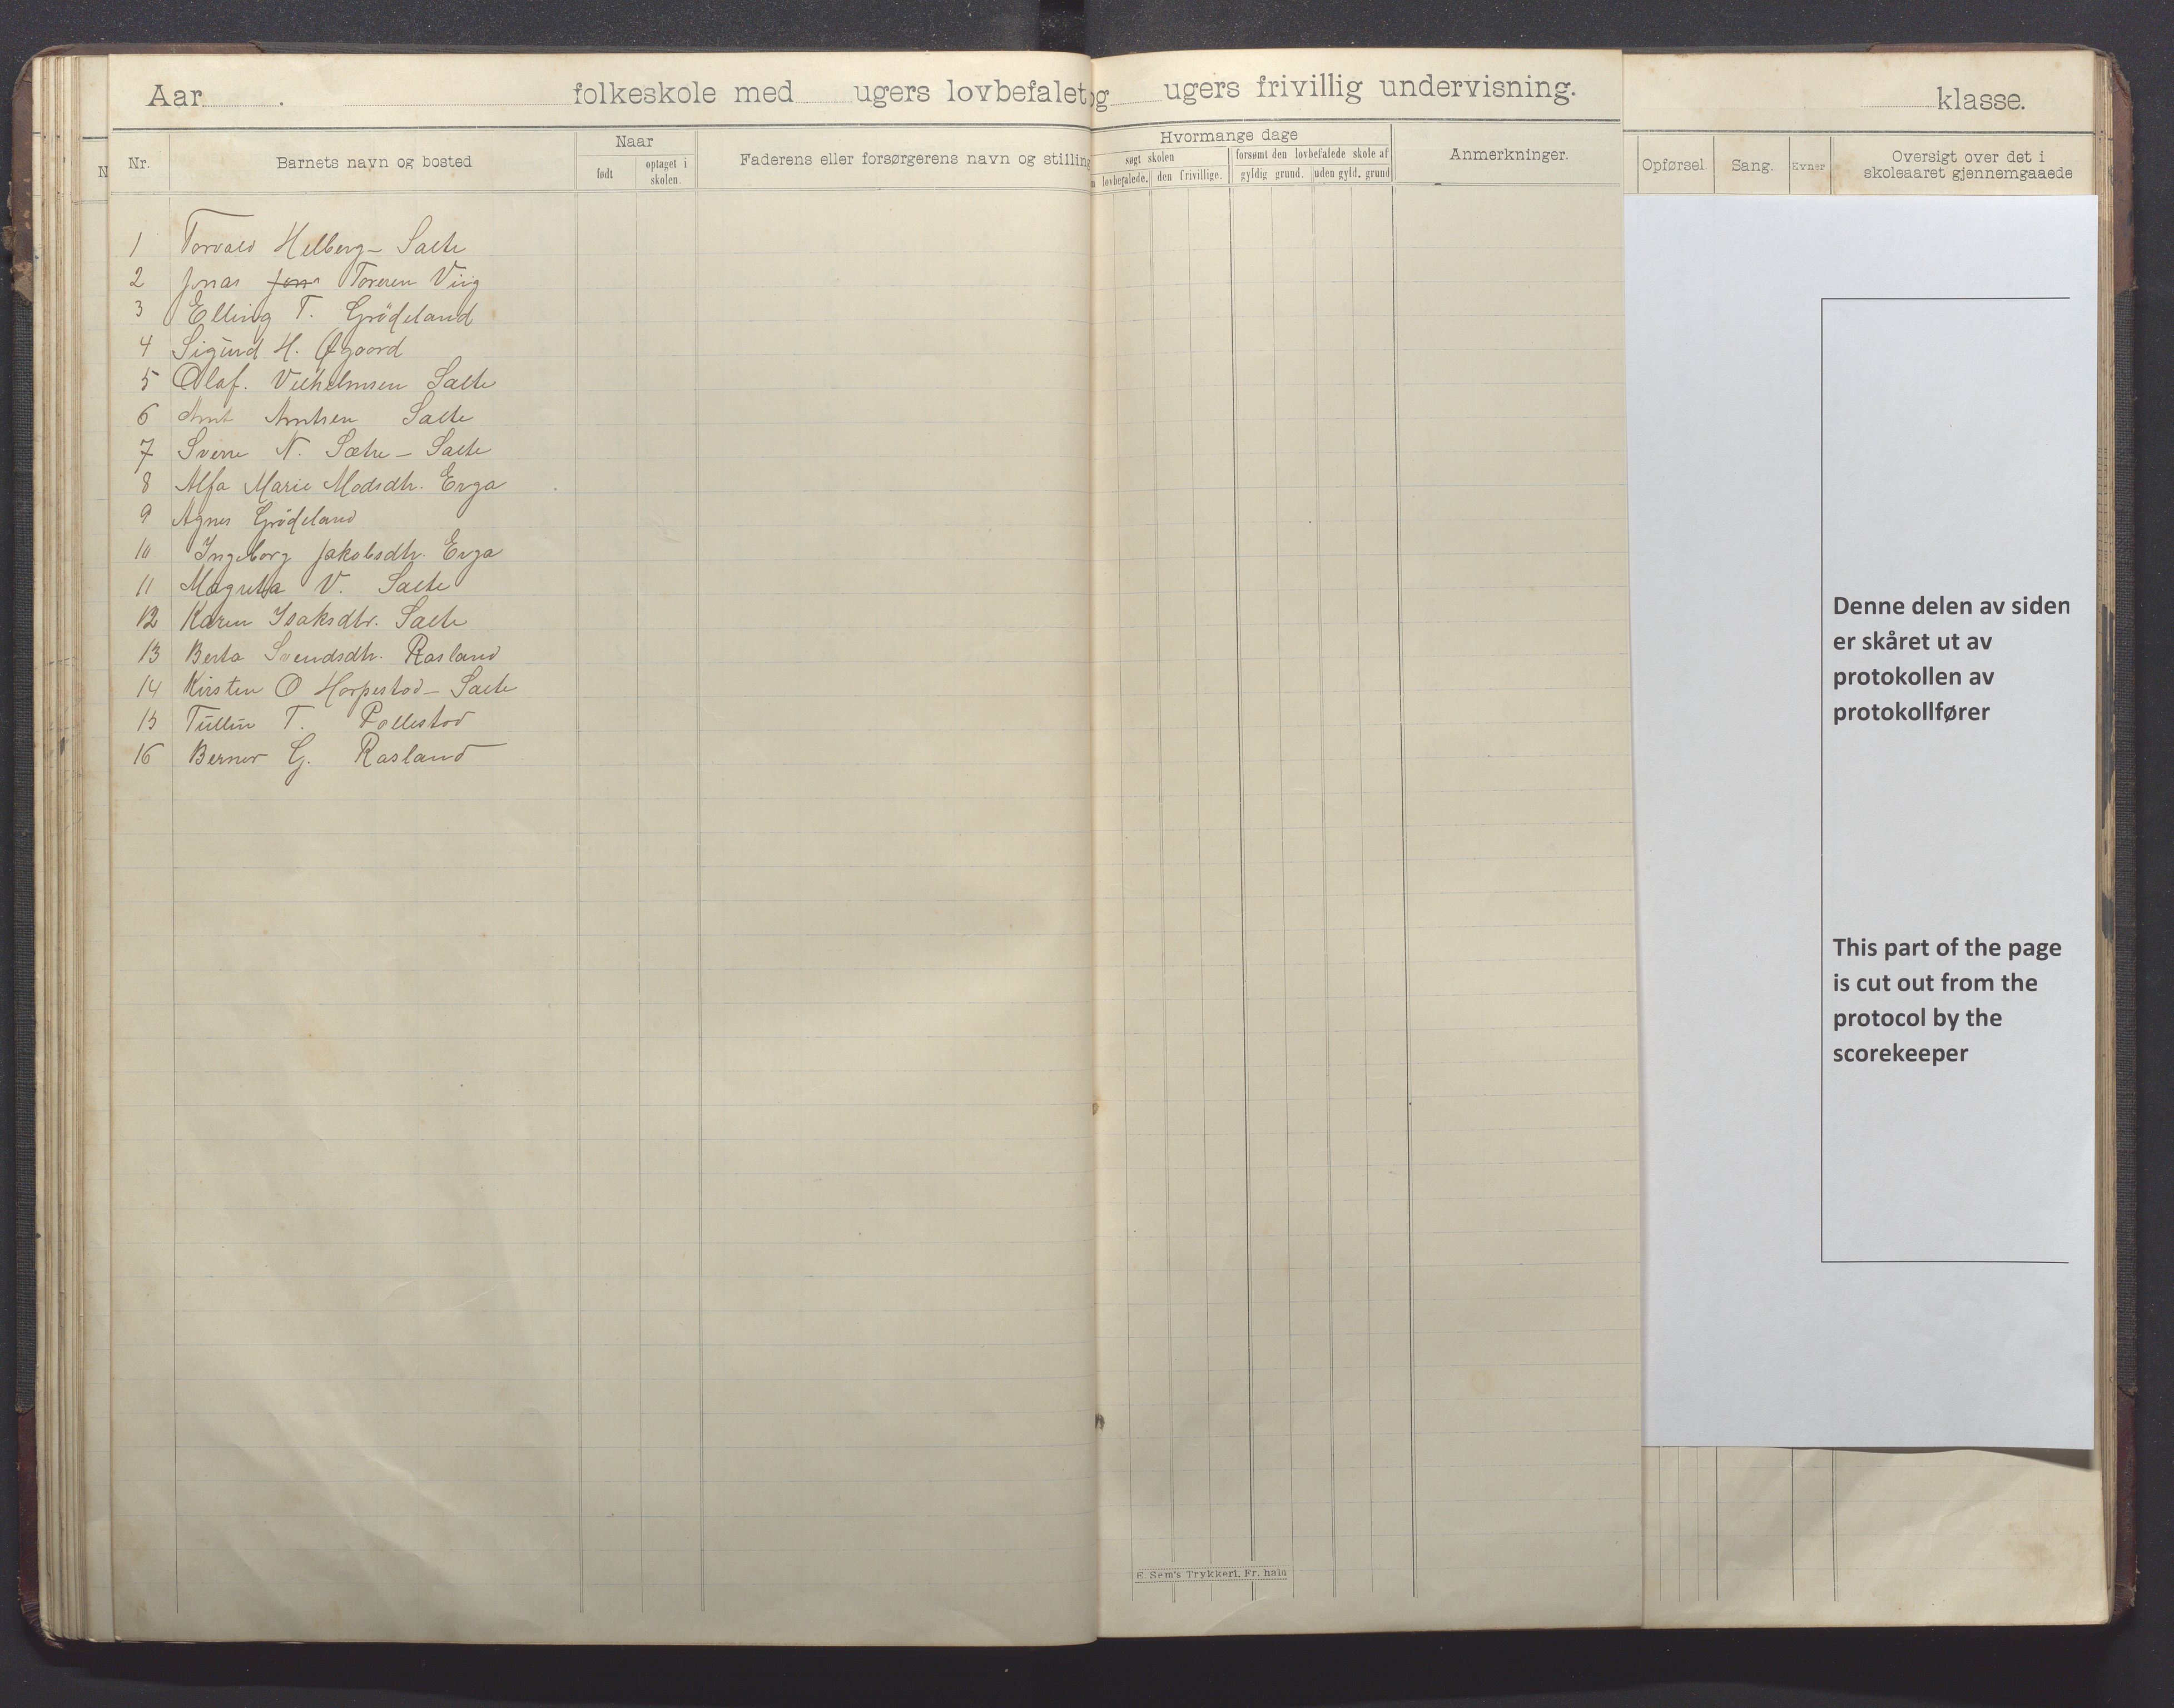 Aar . folkeskole med ugers lovbefalet og ugers frivillig undervisning.
klasse.
N
Nr.
Barnets navn og bosted
Naar
født
optaget i
skolen.
Faderens eller forsørgerens navn og stilling
Hvormange dage
søgt skolen
lovbefalede.
den frivillige.
forsømt den lovbefalede skole af
gyldig grund.
uden gyld. grund
Anmerkninger.
Opførsel.
Sang.
Evner
Oversigt over det i
skoleaaret gjennemgaaede
1 Torvald Helberg - Salte
2 Jonas Toresen Viig
3 Elling T. Grödeland
4 Sigurd H. Øgaard
5 Olaf. Vilhelmsen Salte
6 Arnt Arntsen Salte
7 Sverre N. Sætre - Salte
8 Alfa Marie Madsdtr. Erga
9 Agnes Grödeland
10 Ingeborg Jakobsdtr. Erga
11 Magretha V. Salte
12 Karen Isaksdtr. Salte
13 Berta Svendsdtr. Rasland
14 Kirsten O Harpestad - Salte
15 Tullin T. Pollestad
16 Berner G. Rasland
Denne delen av siden
er skåret ut av
protokollen av
protokollfører
This part of the page
is cut out from the
protocol by the
scorekeeper
E. Sem's Trykkeri, Fr. hald